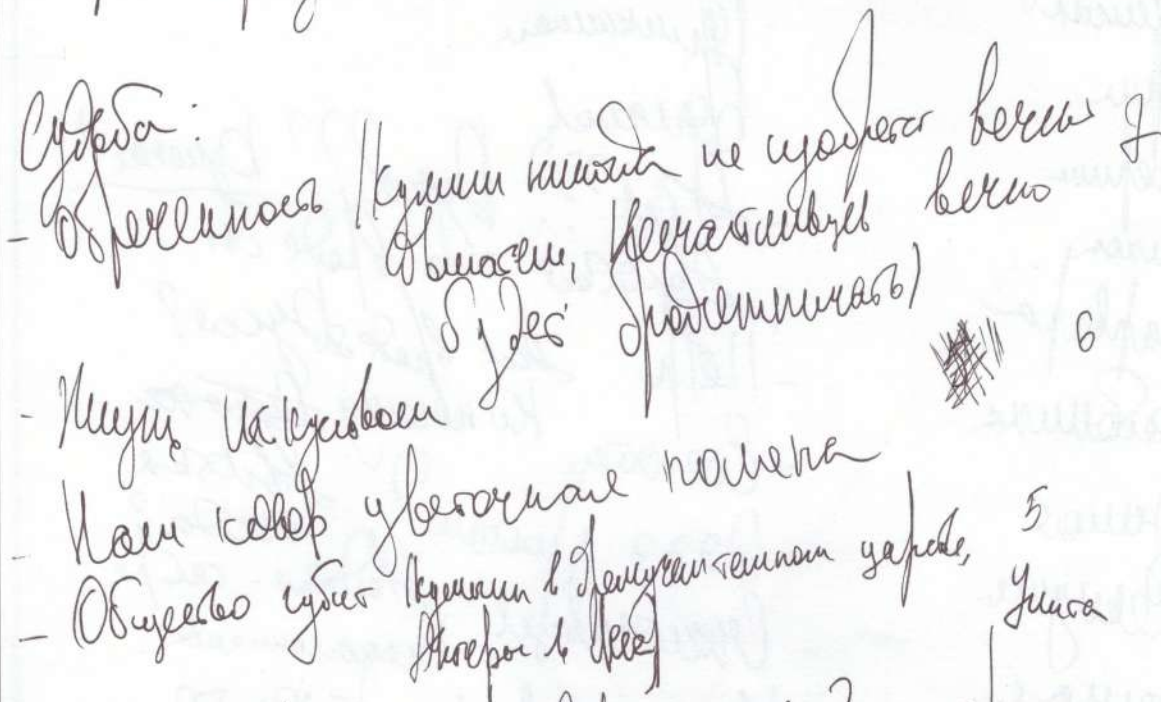 Судьба:
- Обреченность (Кулигин никогда не изобретет вечный
двигатель, Несчастливцев вечно
будет бродяжничать)
6
- Живут искусством
- Наш ковёр цветочная поляна
5
- Общество губит (Кулигин в царстве,
Актеры в